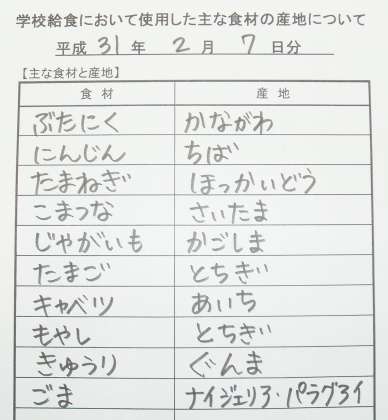 学校給食において使用した主な食材の産地について
平成 31 年 2 月 7 日分
【主な食材と産地】
食材 産地
ぶたにく かながわ
にんじん ちば
たまねぎ ほっかいどう
こまつな さいたま
じゃがいも かごしま
たまご とちぎ
キャベツ あいち
もやし とちぎ
きゅうり ぐんま
ごま ナイジェリア・パラグアイ